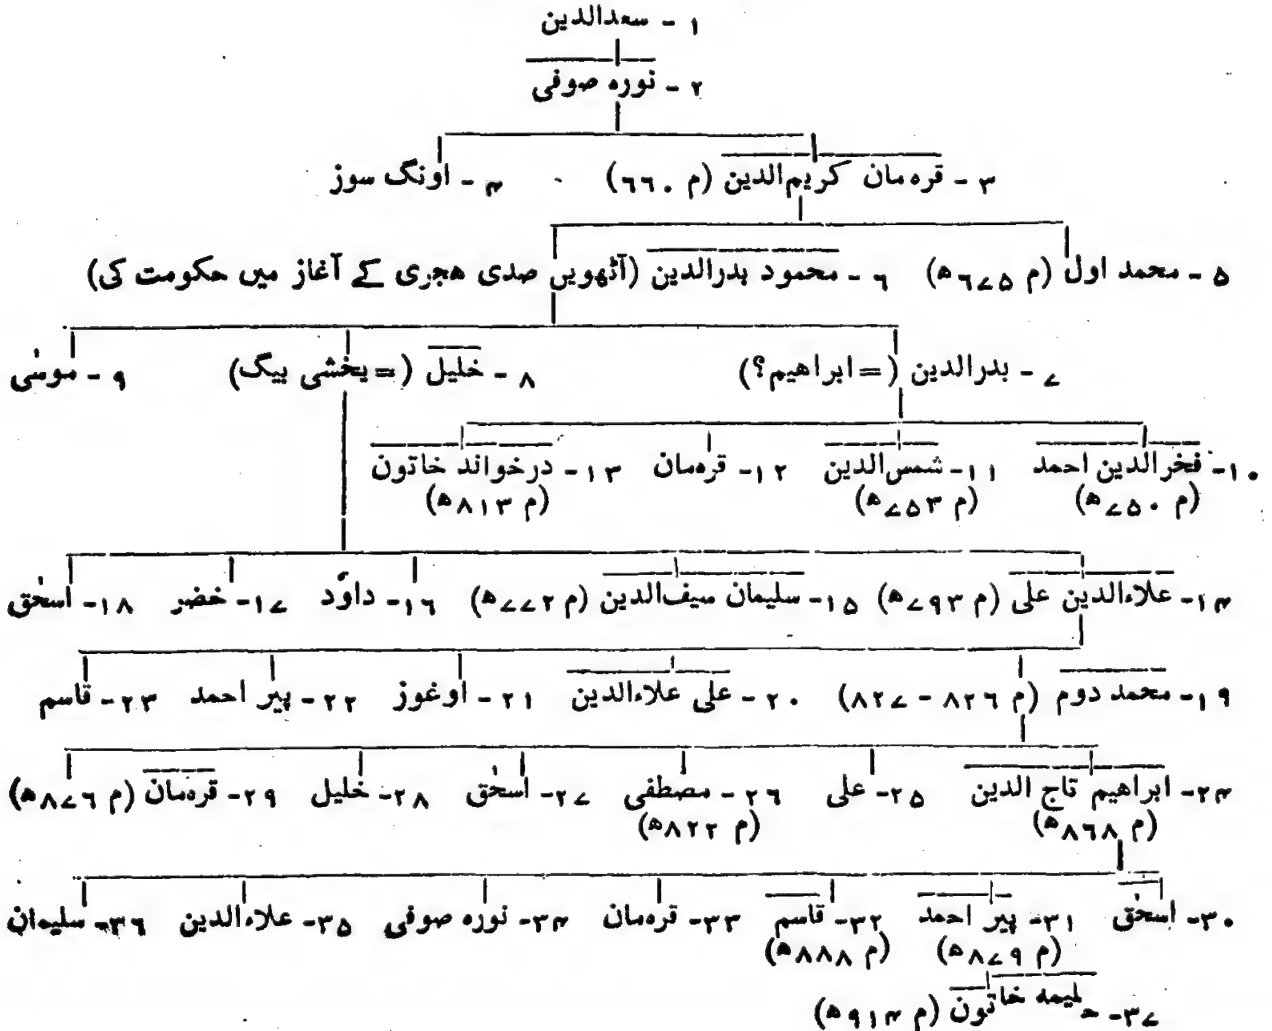 ۱ - سعدالدین
۲ - نوره صوفی
۳ - قرہ مان کریم‌الدین (م ۶۶۰) ۴ - اونگ سوز
۵ - محمد اول (م ۶۷۵ھ) ۶ - محمود بدرالدین (آٹھویں صدی ھجری کے آغاز میں حکومت کی)
۷ - بدرالدین (= ابراھیم؟) ۸ - خلیل (= یخشی بیگ) ۹ - موسٰی
۱۰- فخرالدین احمد ۱۱- شمس‌الدین ۱۲- قرہ‌مان ۱۳- درخواند خاتون
(م ۷۵۰ھ) (م ۷۵۳ھ) (م ۸۱۳ھ)
۱۴- علاءالدین علی (م ۷۹۳ھ) ۱۵- سلیمان سیف‌الدین (م ۷۷۲ھ) ۱۶- داؤد ۱۷- خضر ۱۸- اسحٰق
۱۹- محمد دوم (م ۸۲۶ - ۸۲۷) ۲۰- علی علاءالدین ۲۱- اوغوز ۲۲- پیر احمد ۲۳- قاسم
۲۴- ابراھیم تاج الدین ۲۵- علی ۲۶- مصطفی ۲۷- اسحٰق ۲۸- خلیل ۲۹- قرہ‌مان (م ۸۷۶ھ)
(م ۸۶۸ھ) (م ۸۲۲ھ)
۳۰- اسحٰق ۳۱- پیر احمد ۳۲- قاسم ۳۳- قرہ‌مان ۳۴- نورہ صوفی ۳۵- علاءالدین ۳۶- سلیمان
(م ۸۷۹ھ) (م ۸۸۸ھ)
۳۷- حلیمہ خاتون (م ۹۱۴ھ)